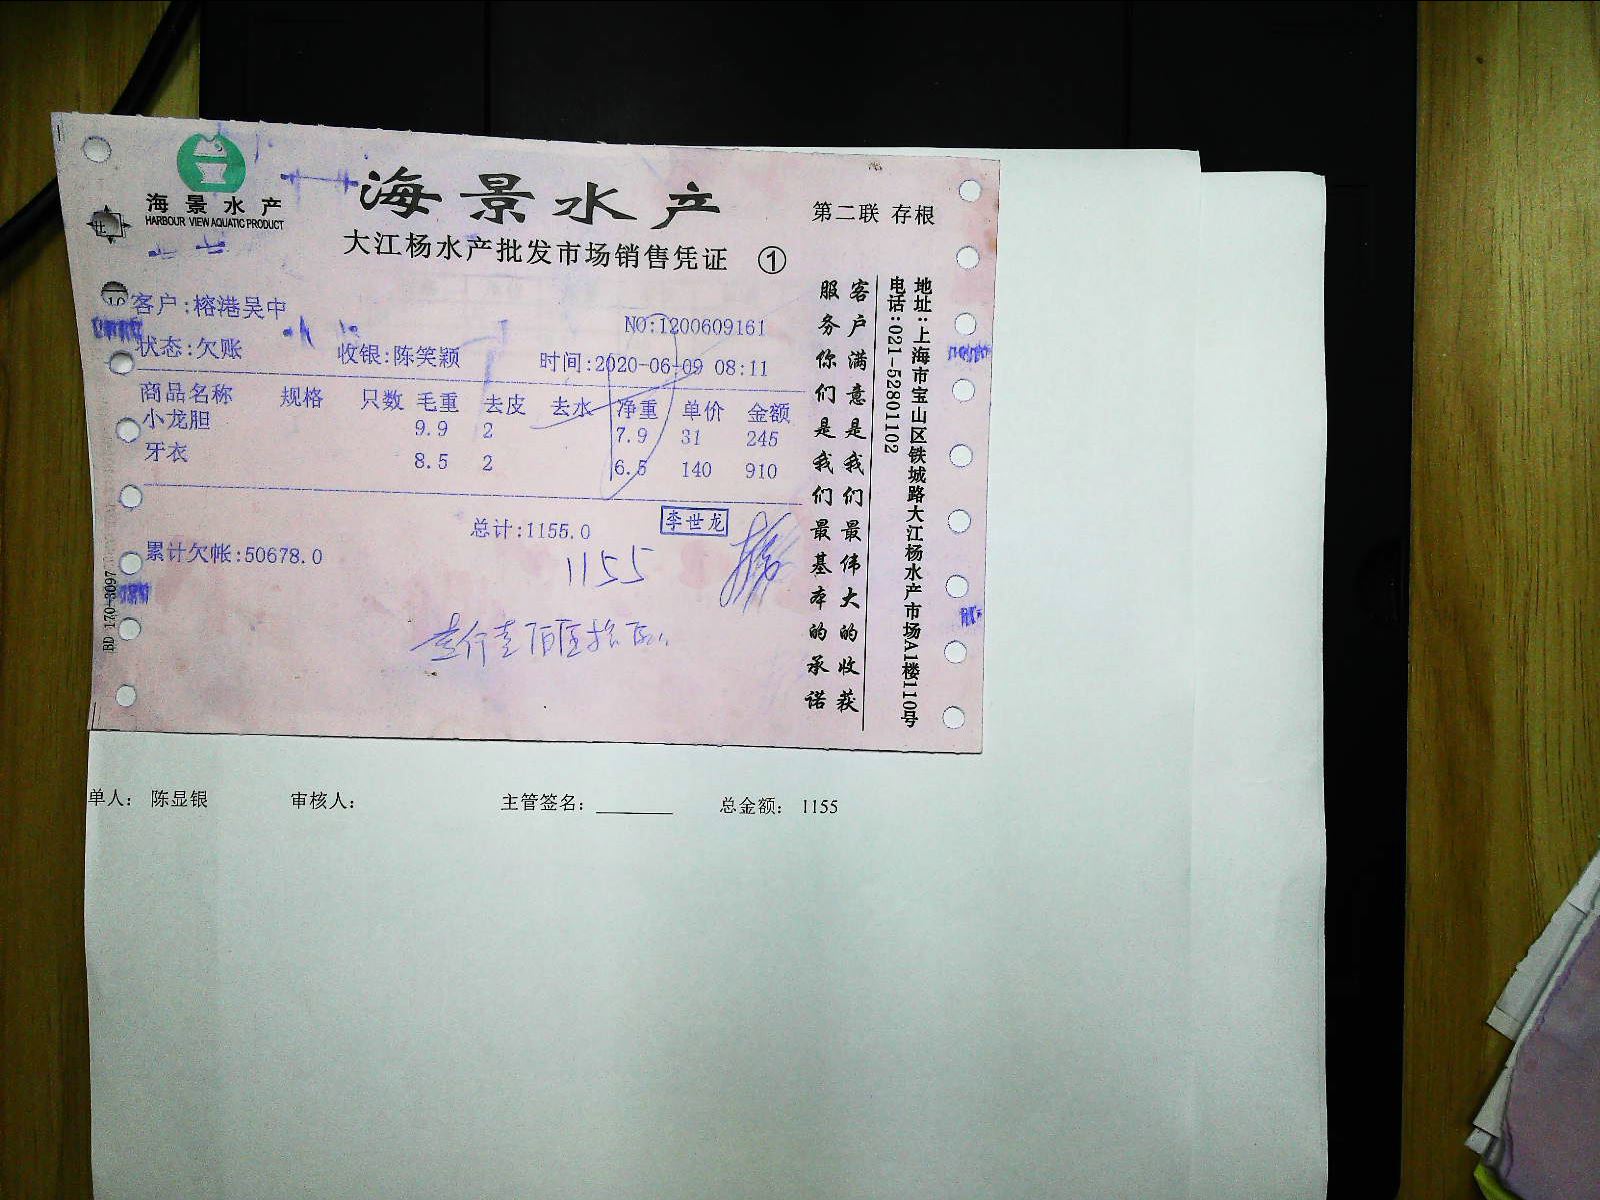 海景水产
HARBOUR VIEW AQUATIC PRODUCT
海景水产
第二联 存根
大江杨水产批发市场销售凭证 ①
客户:榕港吴中
NO:1200609161
状态:欠账 收银:陈笑颖 时间:2020-06-09 08:11
商品名称 规格 只数 毛重 去皮 去水 净重 单价 金额
小龙胆 9.9 2 7.9 31 245
牙衣 8.5 2 6.5 140 910
总计:1155.0
李世龙
累计欠帐:50678.0
1155
壹仟壹佰伍拾伍
BD 170-3097
客户满意是我们最伟大的收获
服务你们是我们最基本的承诺
地址:上海市宝山区铁城路大江杨水产市场A1楼110号
电话:021-52801102
单人: 陈显银 审核人: 主管签名: 总金额: 1155